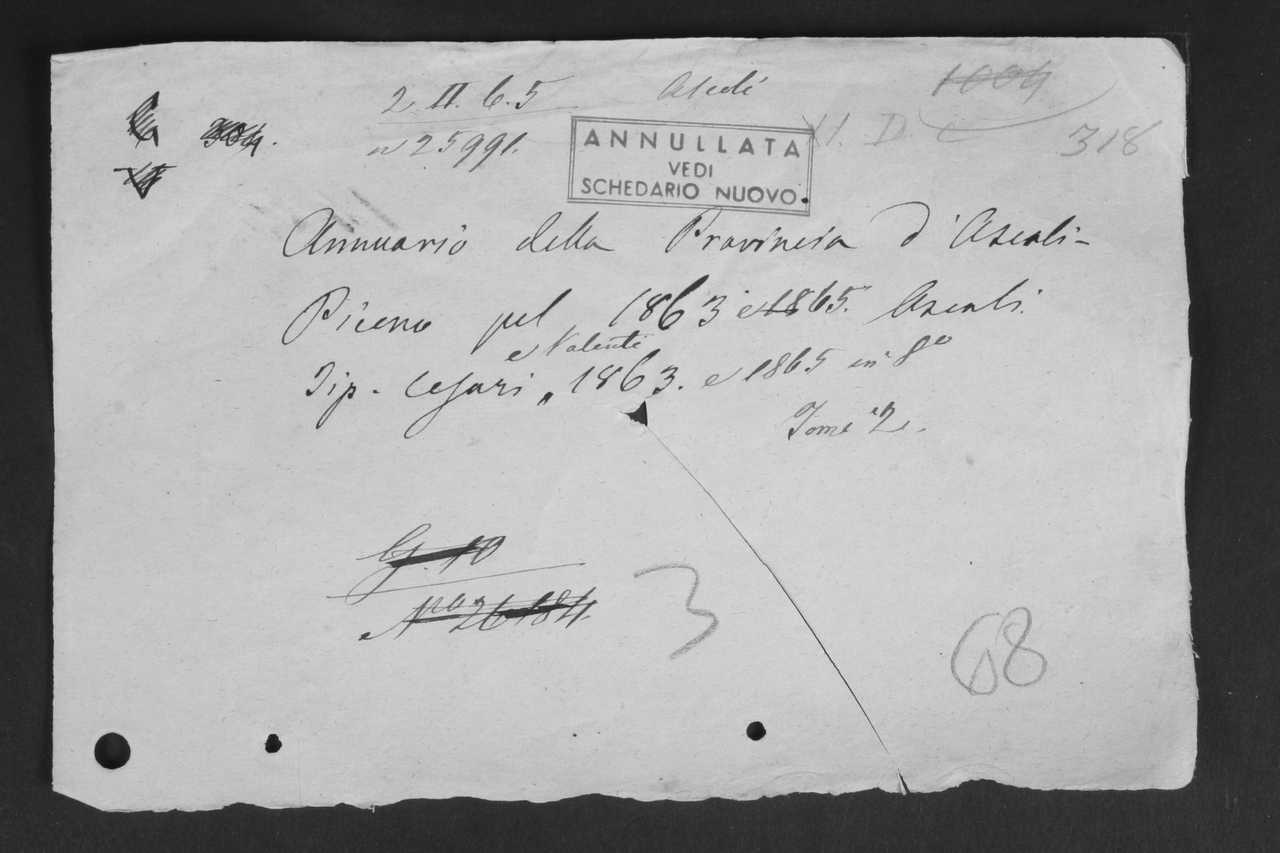 2. II. 6. 5 Ascoli 1004
304. n 25991. XI. D c 318
ANNULLATA
VEDI
SCHEDARIO NUOVO.
Annuario della Provincia d'Ascoli-
Piceno pel 1863 e 1865. Ascoli.
e Valenti
Tip. Cesari 1863. e 1865 in 8º
Tomi 2.
G. 10
Nº 26184.
3
68